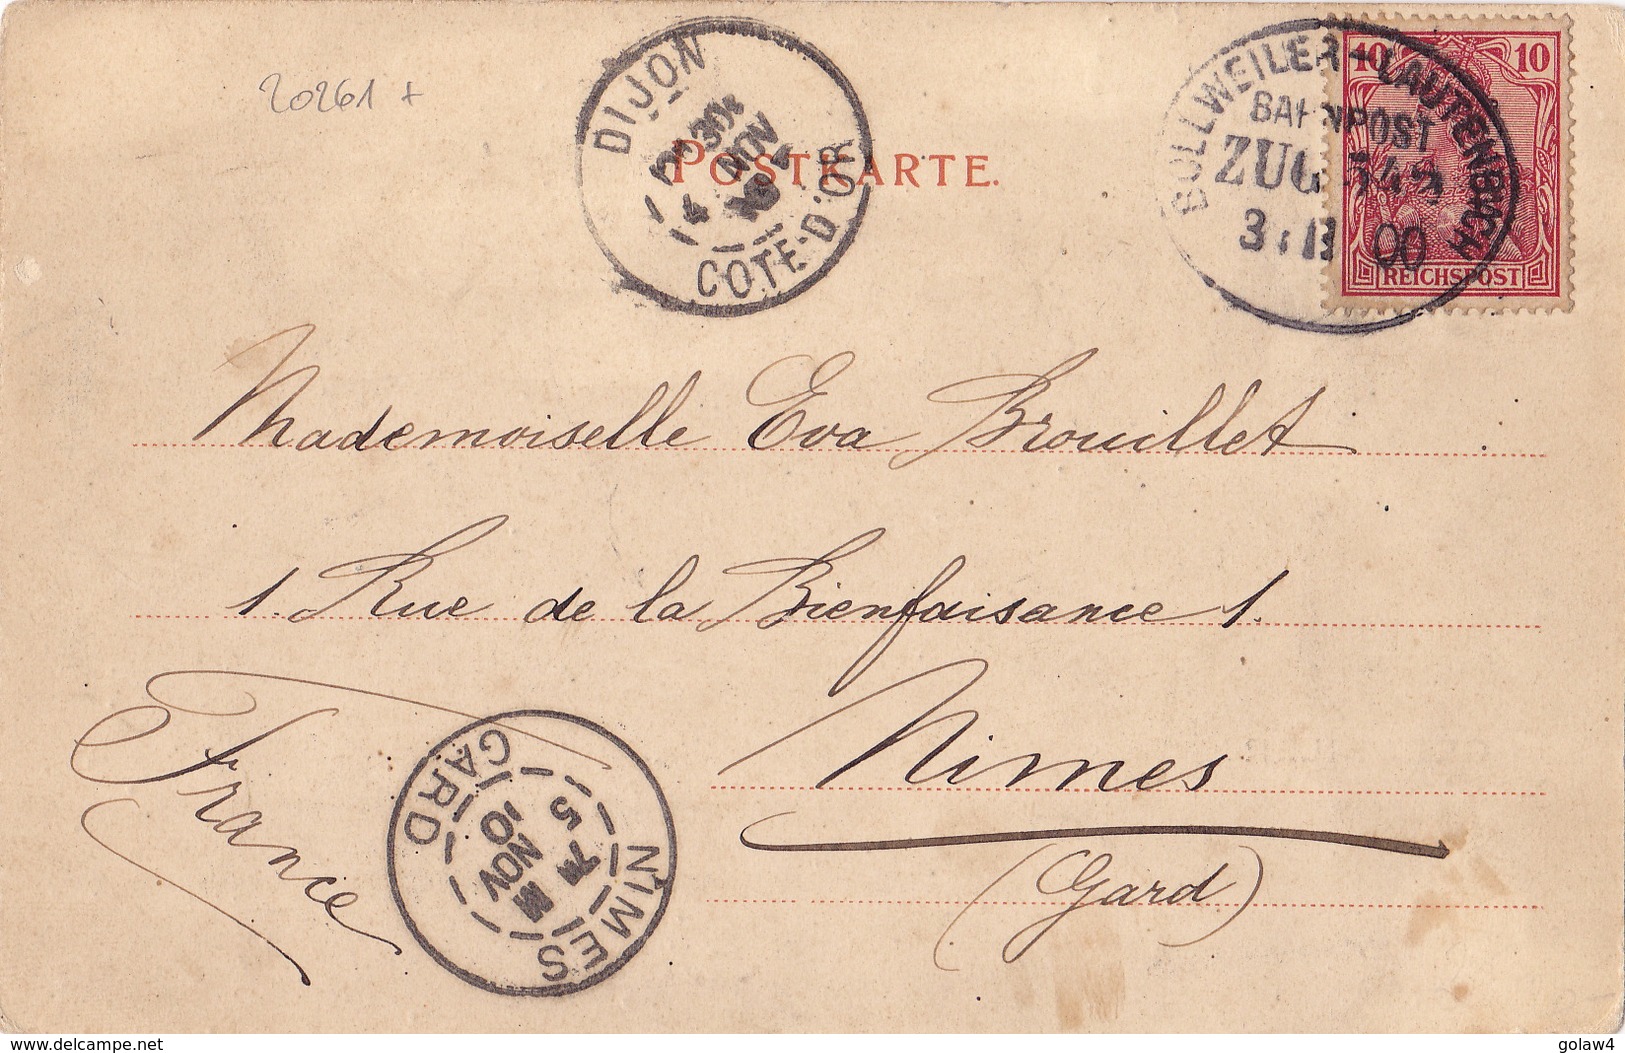 20261 +
DIJON
NOV
COTE-D'OR
POSTKARTE.
BOLLWEILER-LAUTENBACH
BAHNPOST
ZUG
3 11 00
10 10
REICHSPOST
Mademoiselle Eva Brouillet
1. Rue de la Bienfaisance 1.
Nimes
(Gard)
France
NIMES
5
NOV
GARD
www.delcampe.net
golaw4